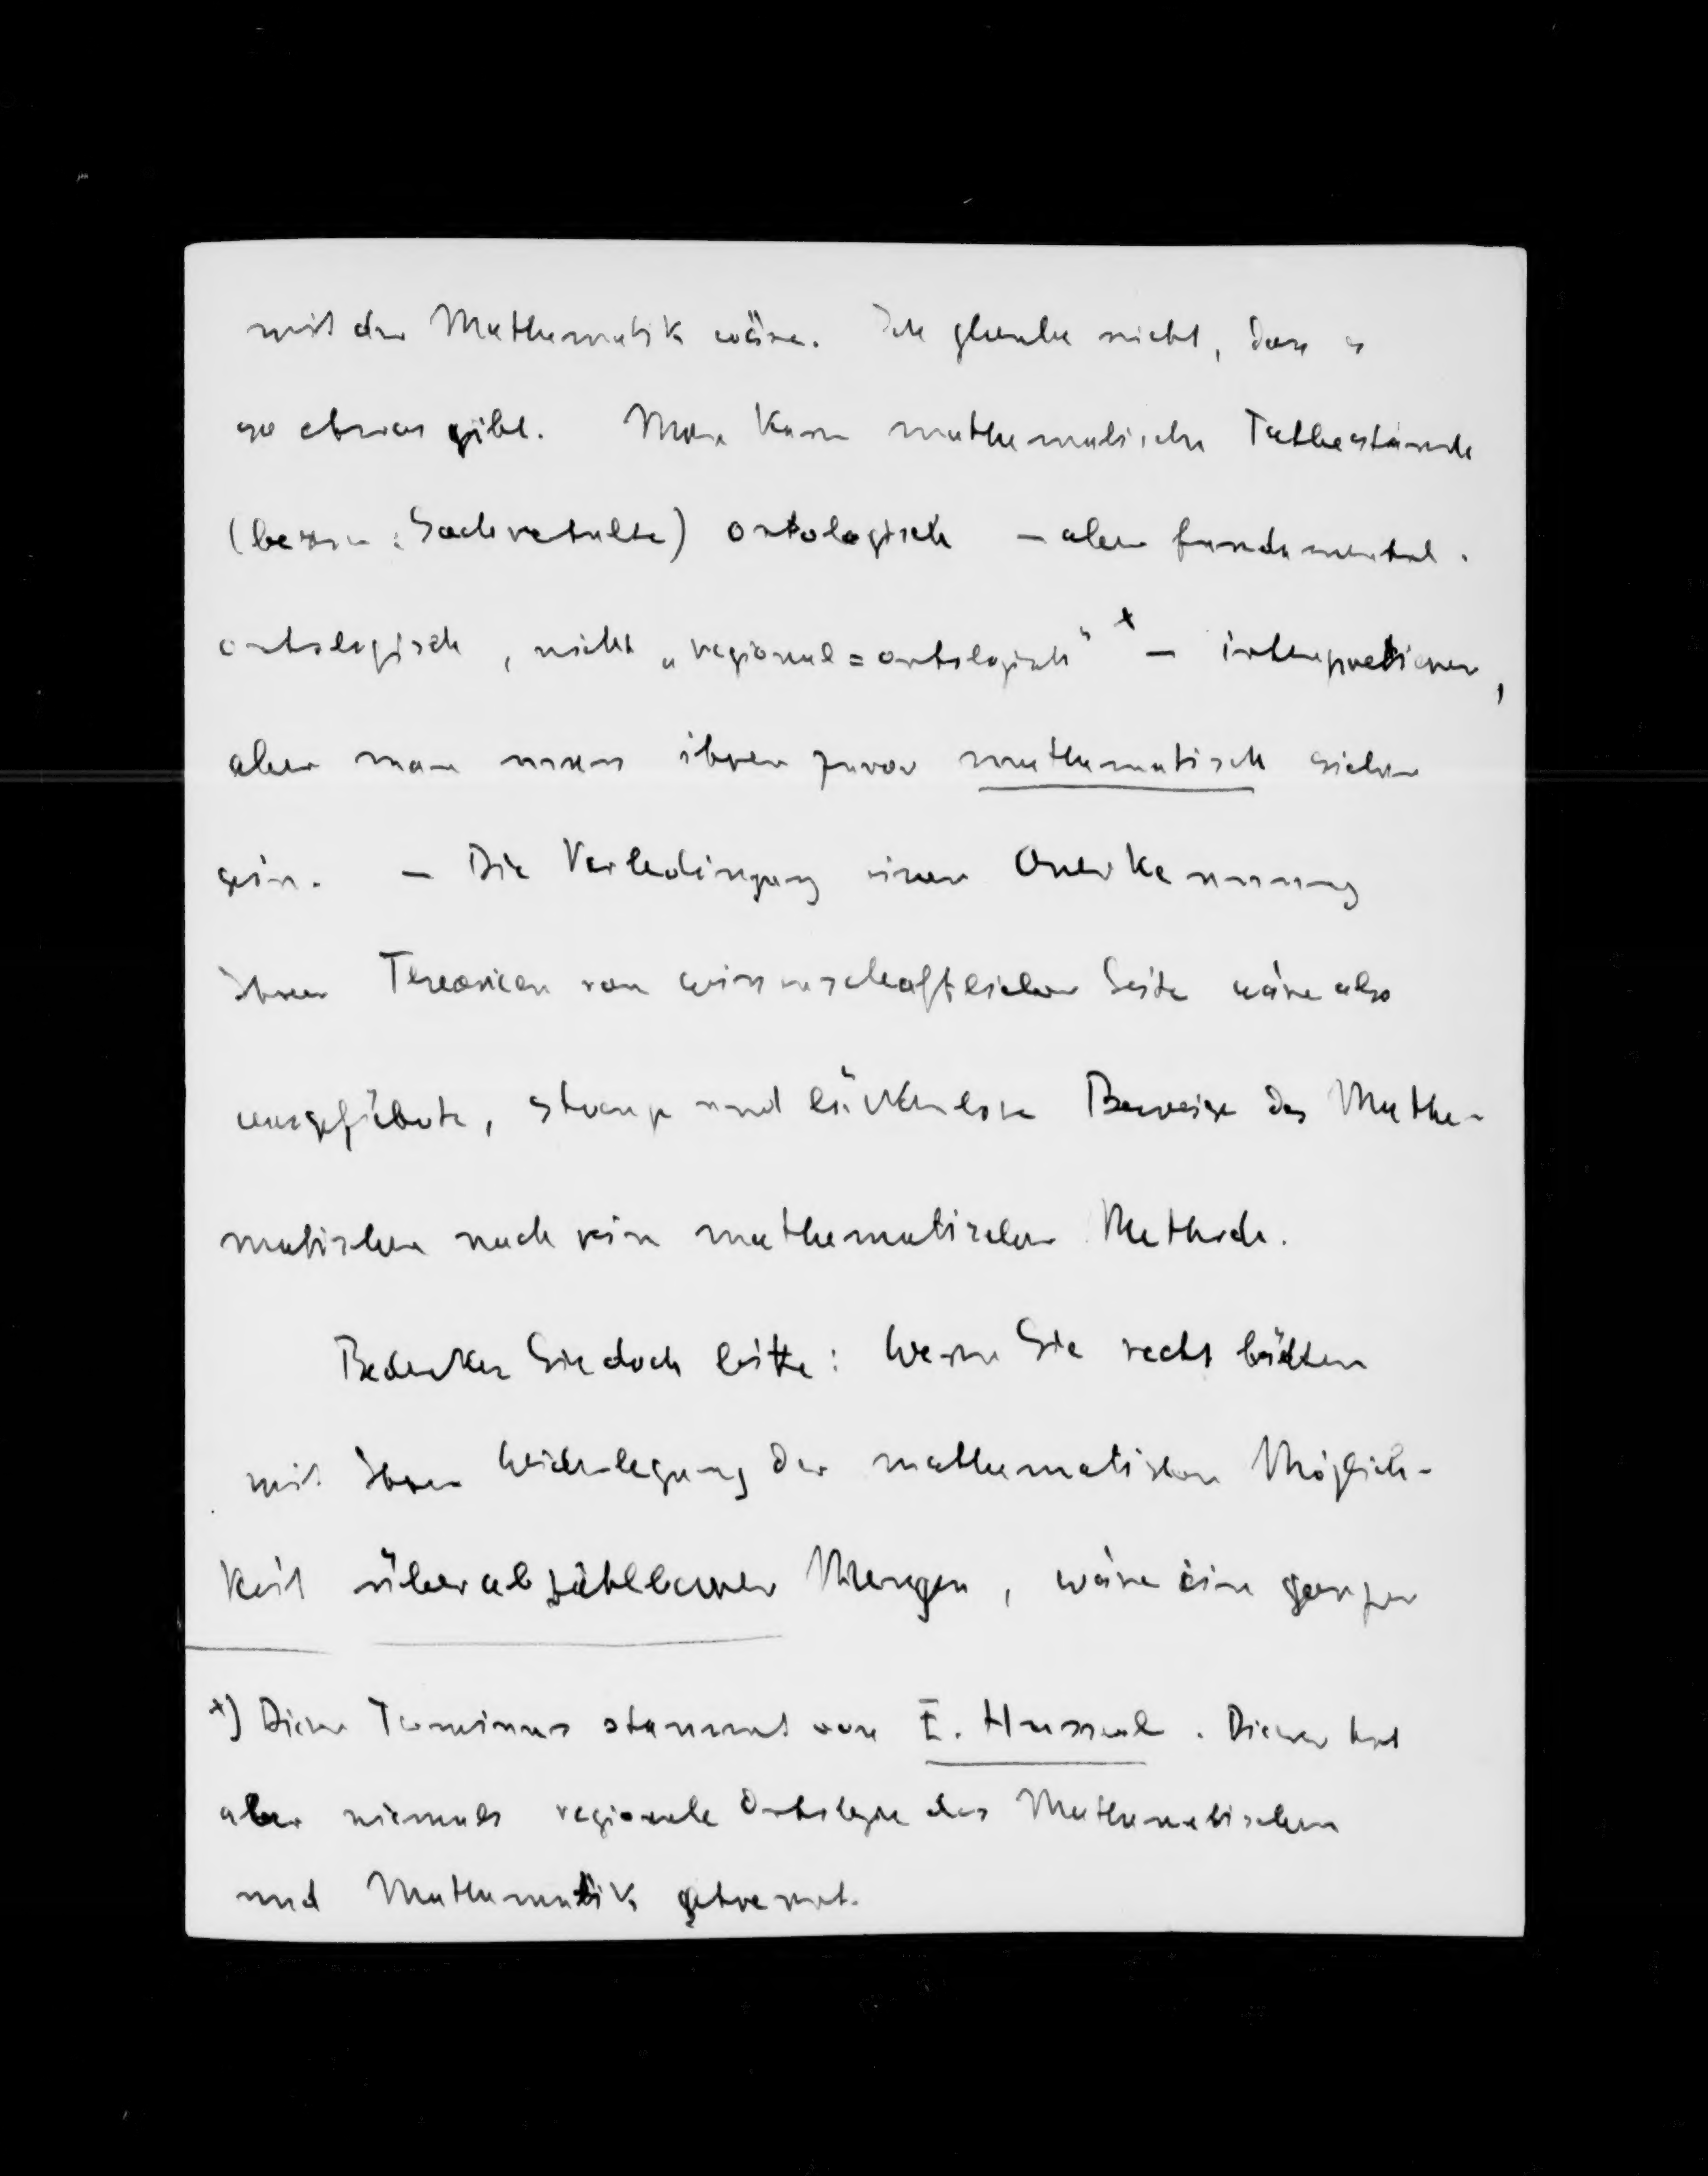 mit der Mathematik wäre. Ich glaube nicht, dass es
so etwas gibt. Man kann mathematische Tatbestände
(besser: Sachverhalte) ontologisch – aber fundamental-
ontologisch, nicht „regional=ontologisch" + – interpretieren,
aber man muss ihrer zuvor mathematisch sicher
sein. – Die Vorbedingung einer Anerkennung
Ihrer Theorien von wissenschaftlicher Seite wäre also
ausgeführte, strenge und lückenlose Beweise des Mathe-
matischen nach rein mathematischer Methode.
Bedenken Sie doch bitte: Wenn Sie recht hätten
mit Ihrer Widerlegung der mathematischen Möglich-
keit überabzählbarer Mengen, wäre ein ganzer
+) Dieser Terminus stammt von E. Husserl. Dieser hat
aber niemals regionale Ontologie des Mathematischen
und Mathematik getrennt.